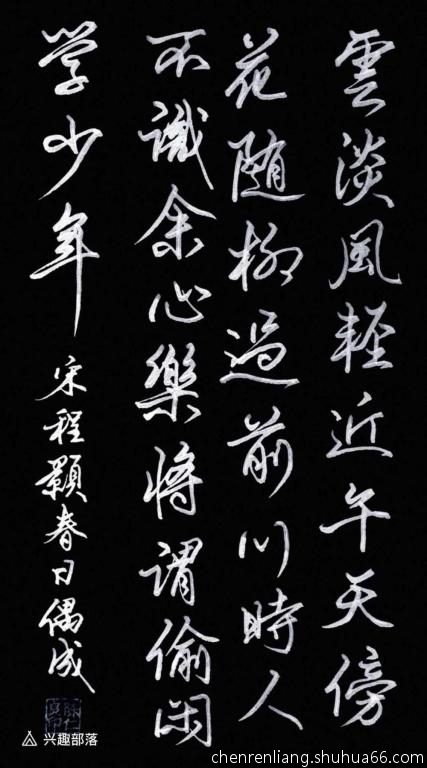 雲淡風輕近午天傍
花随柳過前川時人
不識余心樂將謂偷闲
学少年
宋程顥春日偶成
兴趣部落
chenrenliang.shuhua66.com